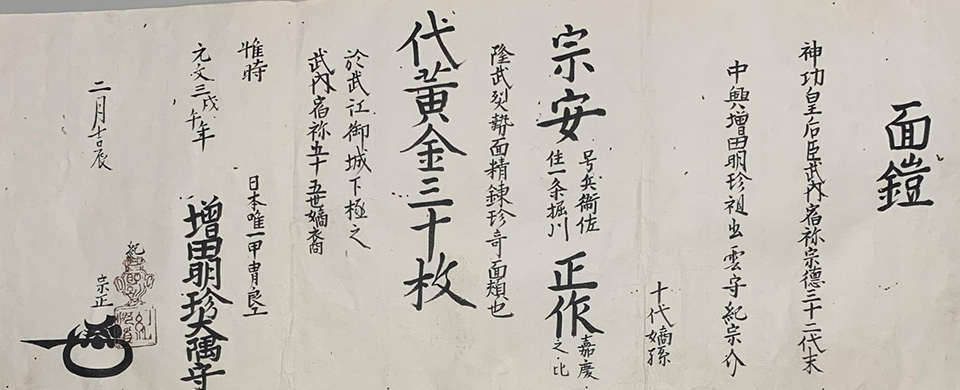 面鎧
神功皇后臣武内宿祢宗德三十二代末
中興増田明珍祖出雲守紀宗介
十代嫡孫
宗安 号兵衞佐 住一条堀川 正作 嘉慶之比
隆武烈勢面精錬珍奇面頬也
代黄金三十枚
於武江御城下極之
武内宿祢五十五世嫡裔
日本唯一甲冑良工
増田明珍大隅守
紀
宗正
惟時
元文三戊午年
二月吉辰